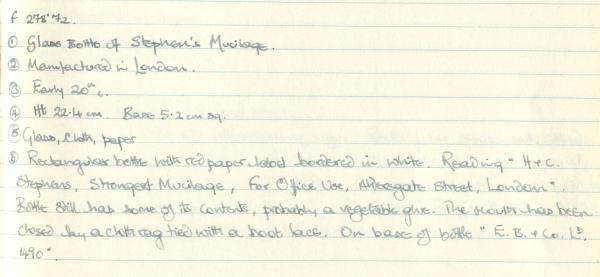 F 278'72.
① Glass Bottle of Stephen's Mucilage.
② Manufactured in London.
③ Early 20th c.
④ Ht 22.4 cm. Base 5.2 cm sq.
⑤ Glass, cloth, paper
⑥ Rectangular bottle with red paper label bordered in white. Reading "H & C.
Stephens, Strongest Mucilage, For Office Use, Aldersgate Street, London".
Bottle still has some of its contents, probably a vegetable glue. The mouth has been
closed by a cloth rag tied with a boot lace. On base of bottle "E. B. & Co. Ld.
1490".